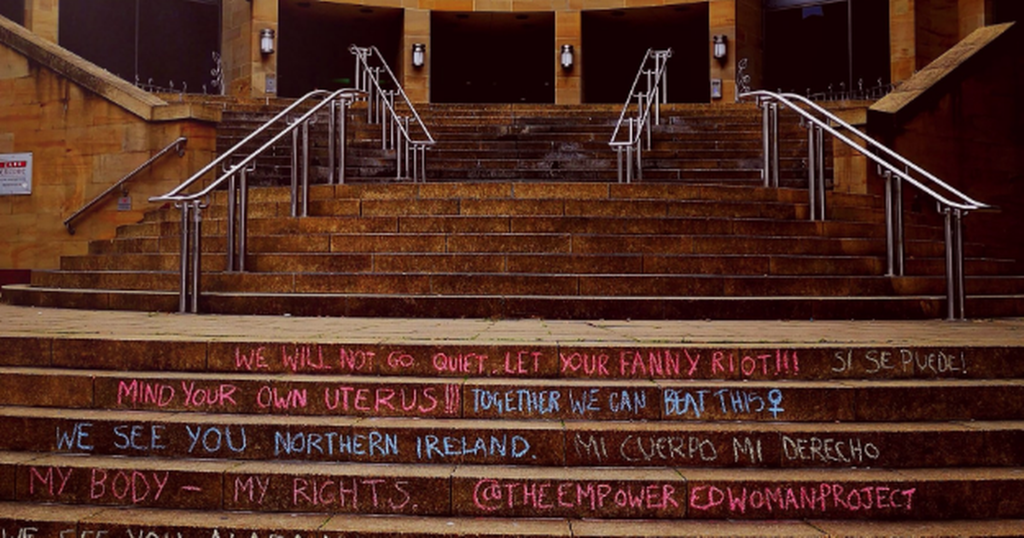 WE WILL NOT GO QUIET.. LET YOUR FANNY RIOT!!! SI SE PUEDE!
MIND YOUR OWN UTERUS!!! TOGETHER WE CAN BEAT THIS♀
WE SEE YOU NORTHERN IRELAND. MI CUERPO MI DERECHO
MY BODY – MY RIGHTS. @THEEMPOWEREDWOMANPROJECT
WE SEE YOU